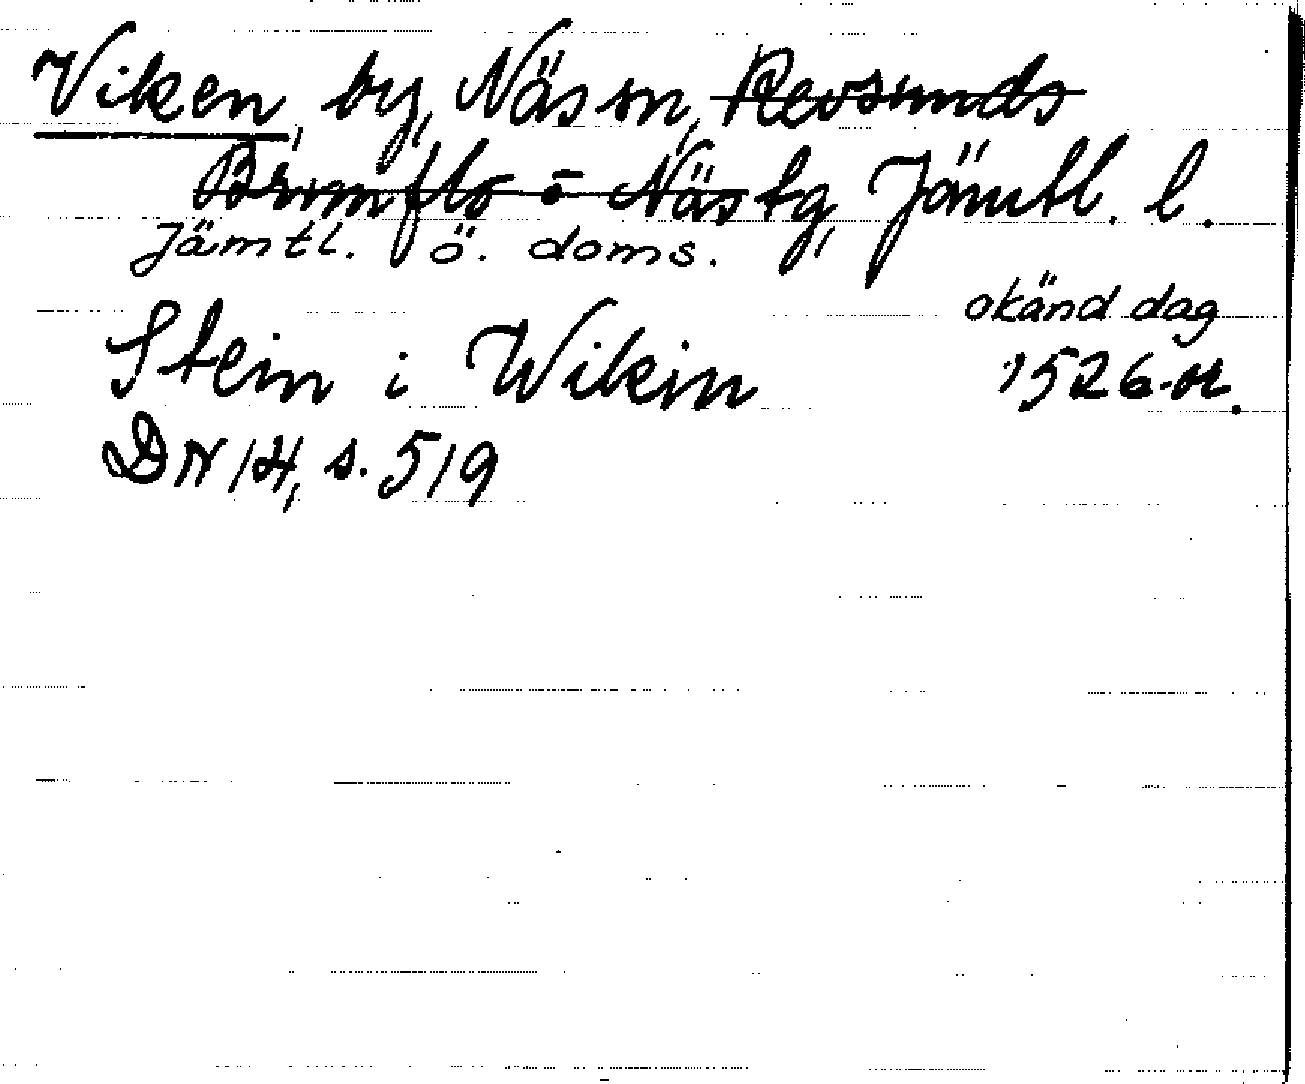 Viken, by, Näs sn, Revsunds
Brunflo o Näs tg, Jämtl. l.
Jämtl. ö. doms.
okänd dag
Stein i Wikin 1526 or.
DN 14, s. 519